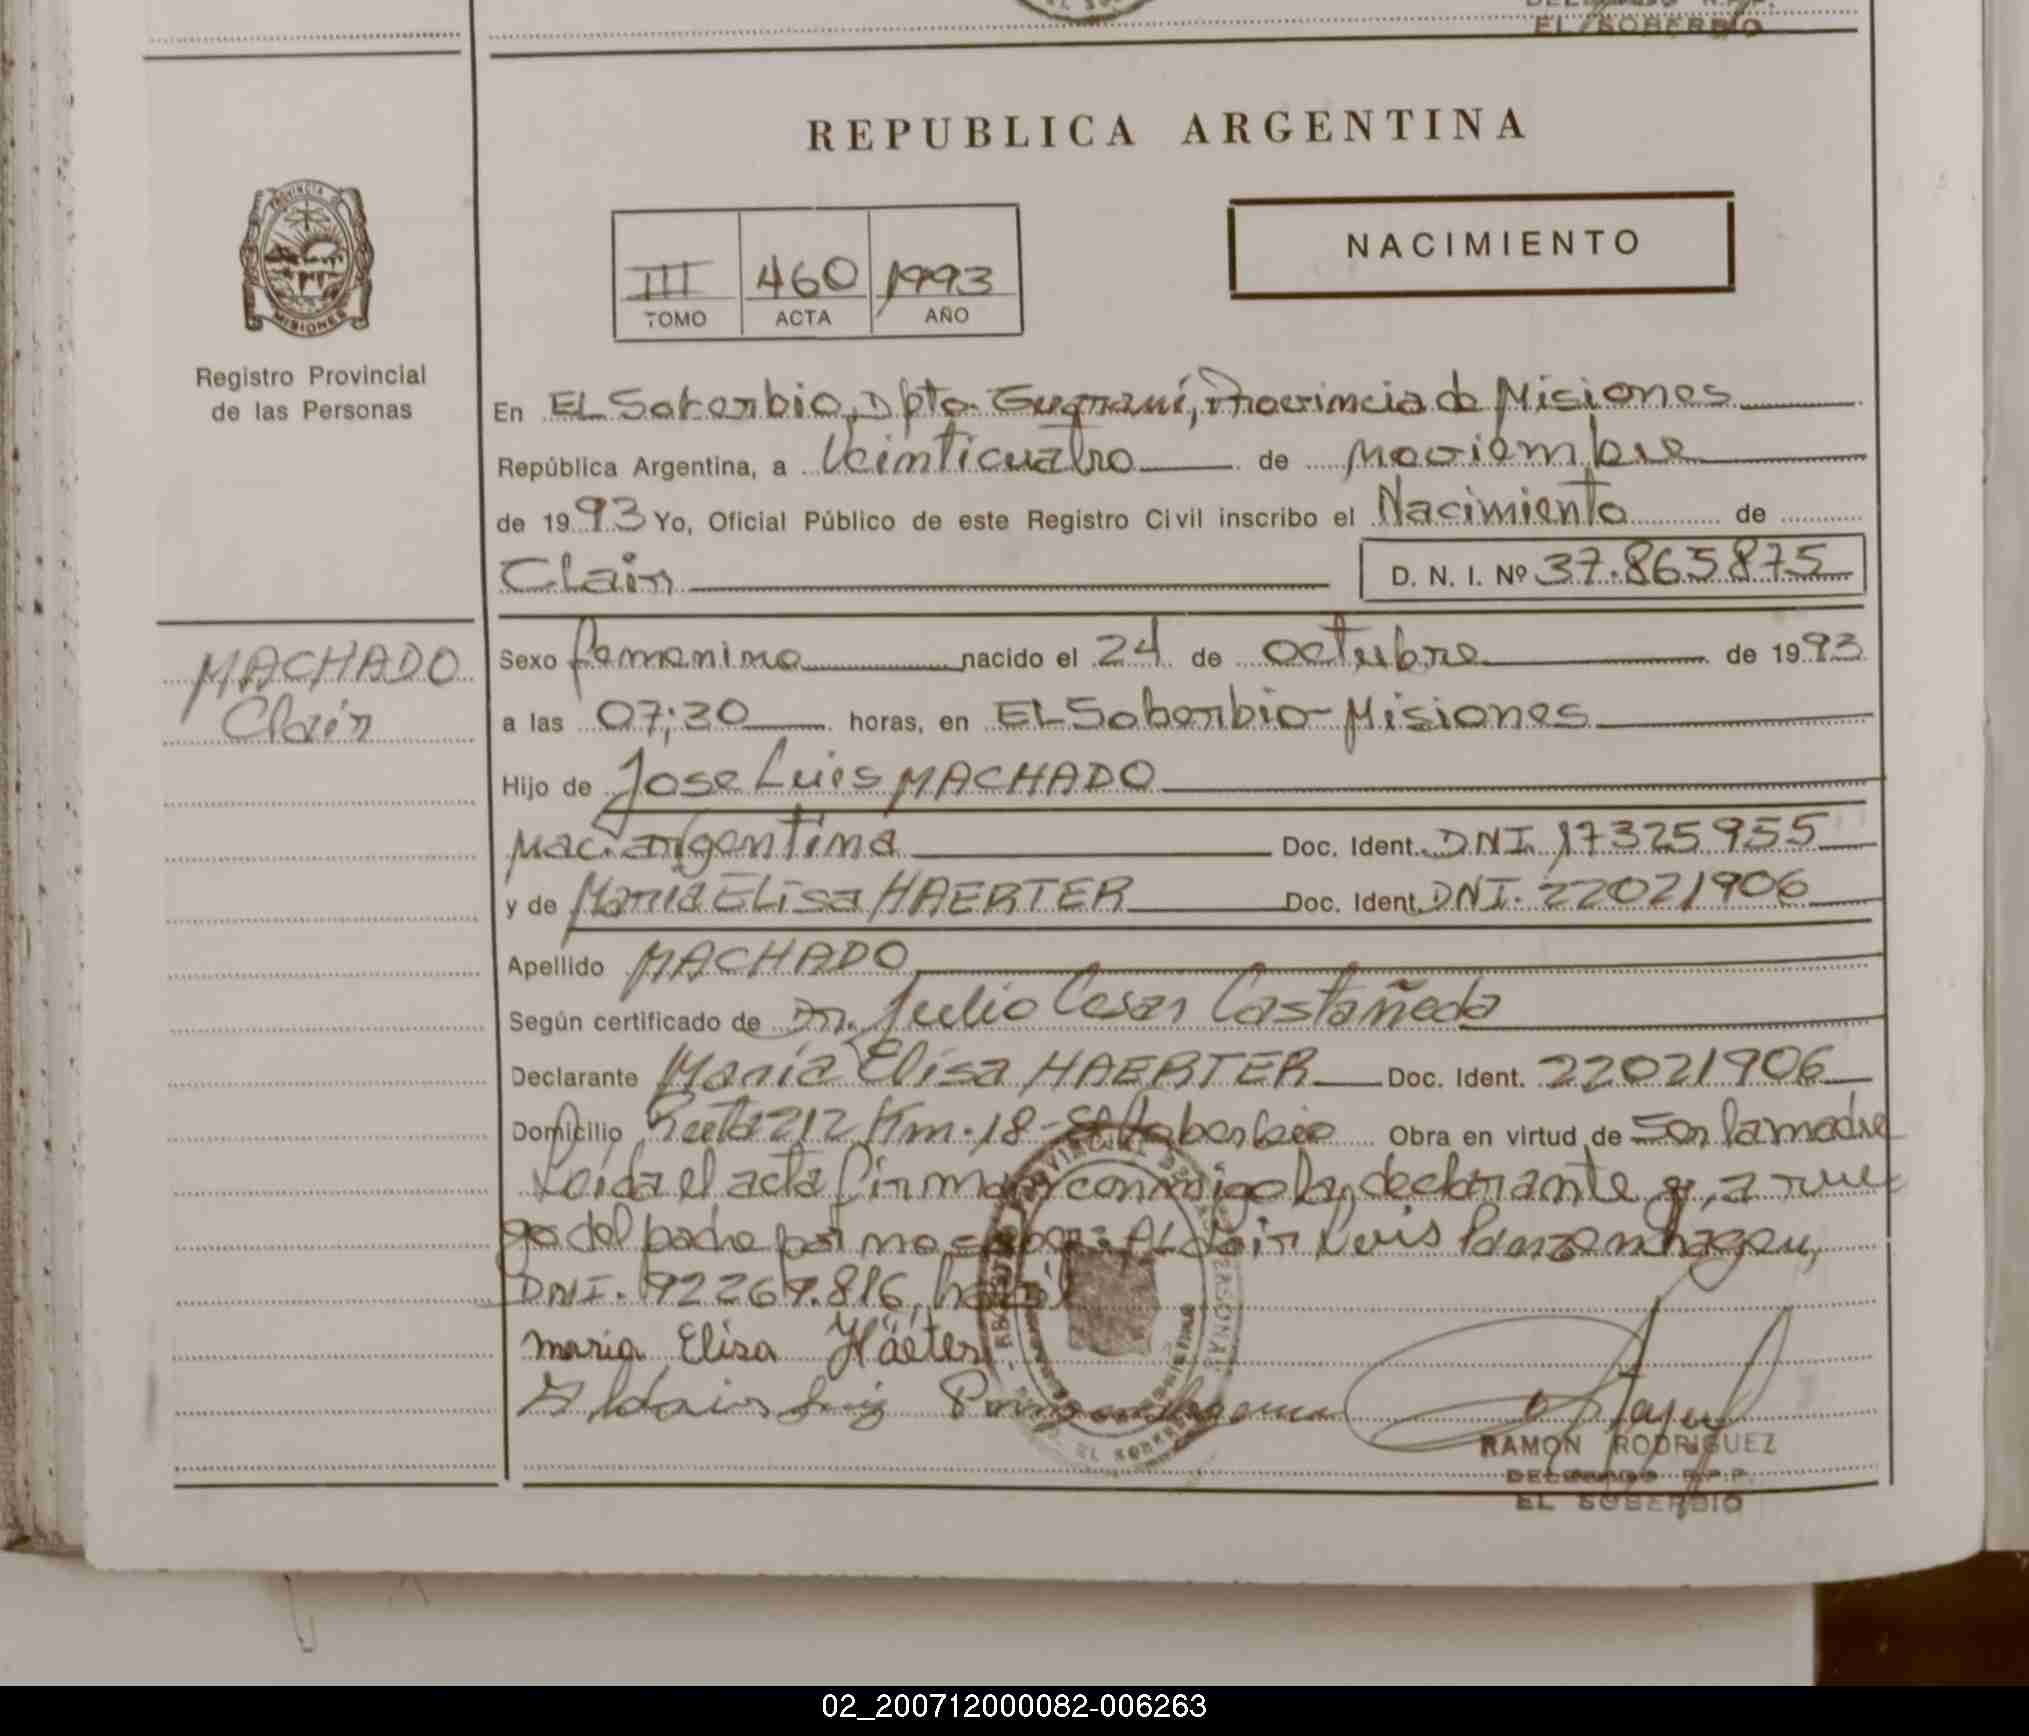 EL SOBERBIO
REPUBLICA ARGENTINA
PROVINCIA DE
MISIONES
Registro Provincial
de las Personas
III 460 1993
TOMO ACTA AÑO
NACIMIENTO
En EL Soberbio, Dpto. Guaraní, Provincia de Misiones
República Argentina, a Veinticuatro de Noviembre
de 1993 Yo, Oficial Público de este Registro Civil inscribo el Nacimiento de
Clair D. N. I. Nº 37.865875
MACHADO
Clair
Sexo femenino nacido el 24 de octubre de 1993
a las 07:30 horas, en EL Soberbio-Misiones
Hijo de Jose Luis MACHADO
Nac. argentina Doc. Ident. DNI. 17325955
y de Maria ELisa HAERTER Doc. Ident. DNI. 22021906
Apellido MACHADO
Según certificado de Dr. Julio Cesar Castañeda
Declarante María Elisa HAERTER Doc. Ident. 22021906
Domicilio Ruta 212 Km. 18- El Soberbio Obra en virtud de Ser la madre
Leida el acta firman conmigo la declarante y, a rue
go del padre por no saber: ALdair Luis Panzenhagen,
DNI. 92267.816, habil
maria Elisa Häéter
Aldair Luiz Panzenhagen
EL SOBERBIO
RAMON RODRIGUEZ
DELEGADO R.P.P.
EL SOBERBIO
02_200712000082-006263